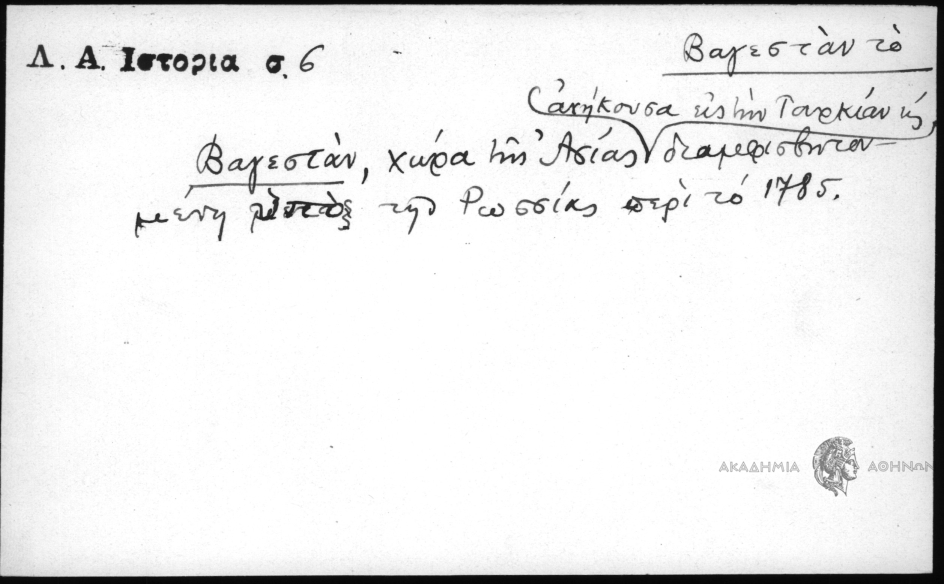 Λ. Α. Ιστορια σ. 6
Βαγεστὰν τὸ
ἀνήκουσα εἰς τὴν Τουρκίαν κ̀
Βαγεστὰν, χώρα τῆς Ἀσίας διαμφισβητου-
μένη ὑπὸ τῆς Ρωσσίας περὶ τὸ 1785.
ΑΚΑΔΗΜΙΑ ΑΘΗΝΩΝ